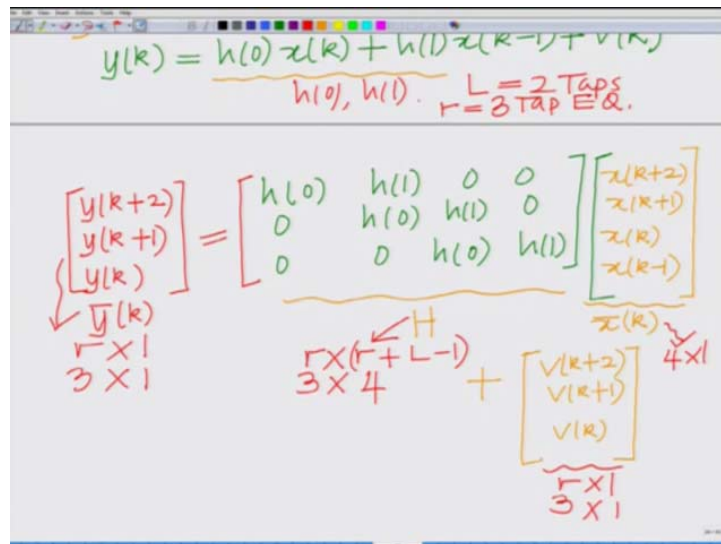 y(k) = h(0)x(k) + h(1)x(k-1) + v(k)
h(0), h(1). L = 2 Taps
r = 3 Tap EQ.
[y(k+2) y(k+1) y(k)] = [h(0) h(1) 0 0
0 h(0) h(1) 0
0 0 h(0) h(1)] [x(k+2) x(k+1) x(k) x(k-1)]
y̅(k) H x̅(k)
r×1 r×(r+L-1) 4×1
3×1 3×4 + [v(k+2) v(k+1) v(k)]
r×1
3×1